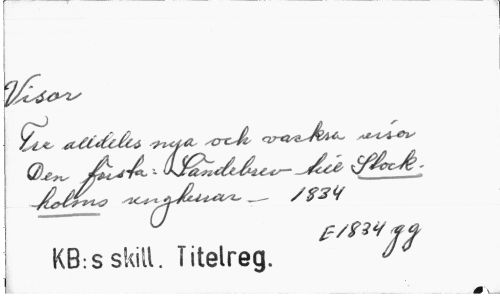 Visor
Tre alldeles nya och vackra visor
Den första: Sändebrev till Stock-
holms ungkarar — 1834
E1834 gg
KB:s skill. Titelreg.